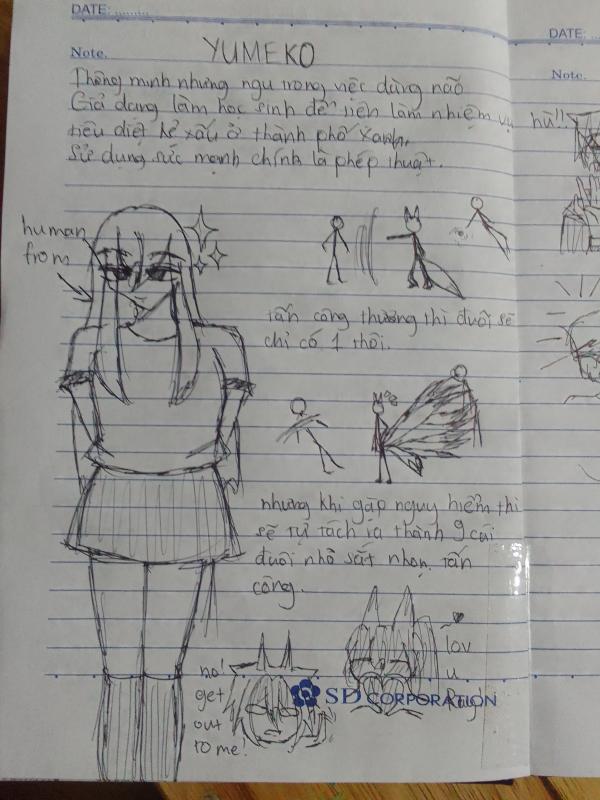 DATE: .........
Note.
YUMEKO
Thông minh nhưng ngu trong việc dùng não
Giả dạng làm học sinh để tiện làm nhiệm vụ
tiêu diệt kẻ xấu ở thành phố xanh.
Sử dụng sức mạnh chính là phép thuật.
human
from
tấn công thường thì đuôi sẽ
chỉ có 1 thôi.
nhưng khi gặp nguy hiểm thì
sẽ tự tách ra thành 9 cái
đuôi nhỏ sắt nhọn tấn
công.
no!
get
out
to me!
lov
u
SD CORPORATION
DATE: ...
Note.
hù!!